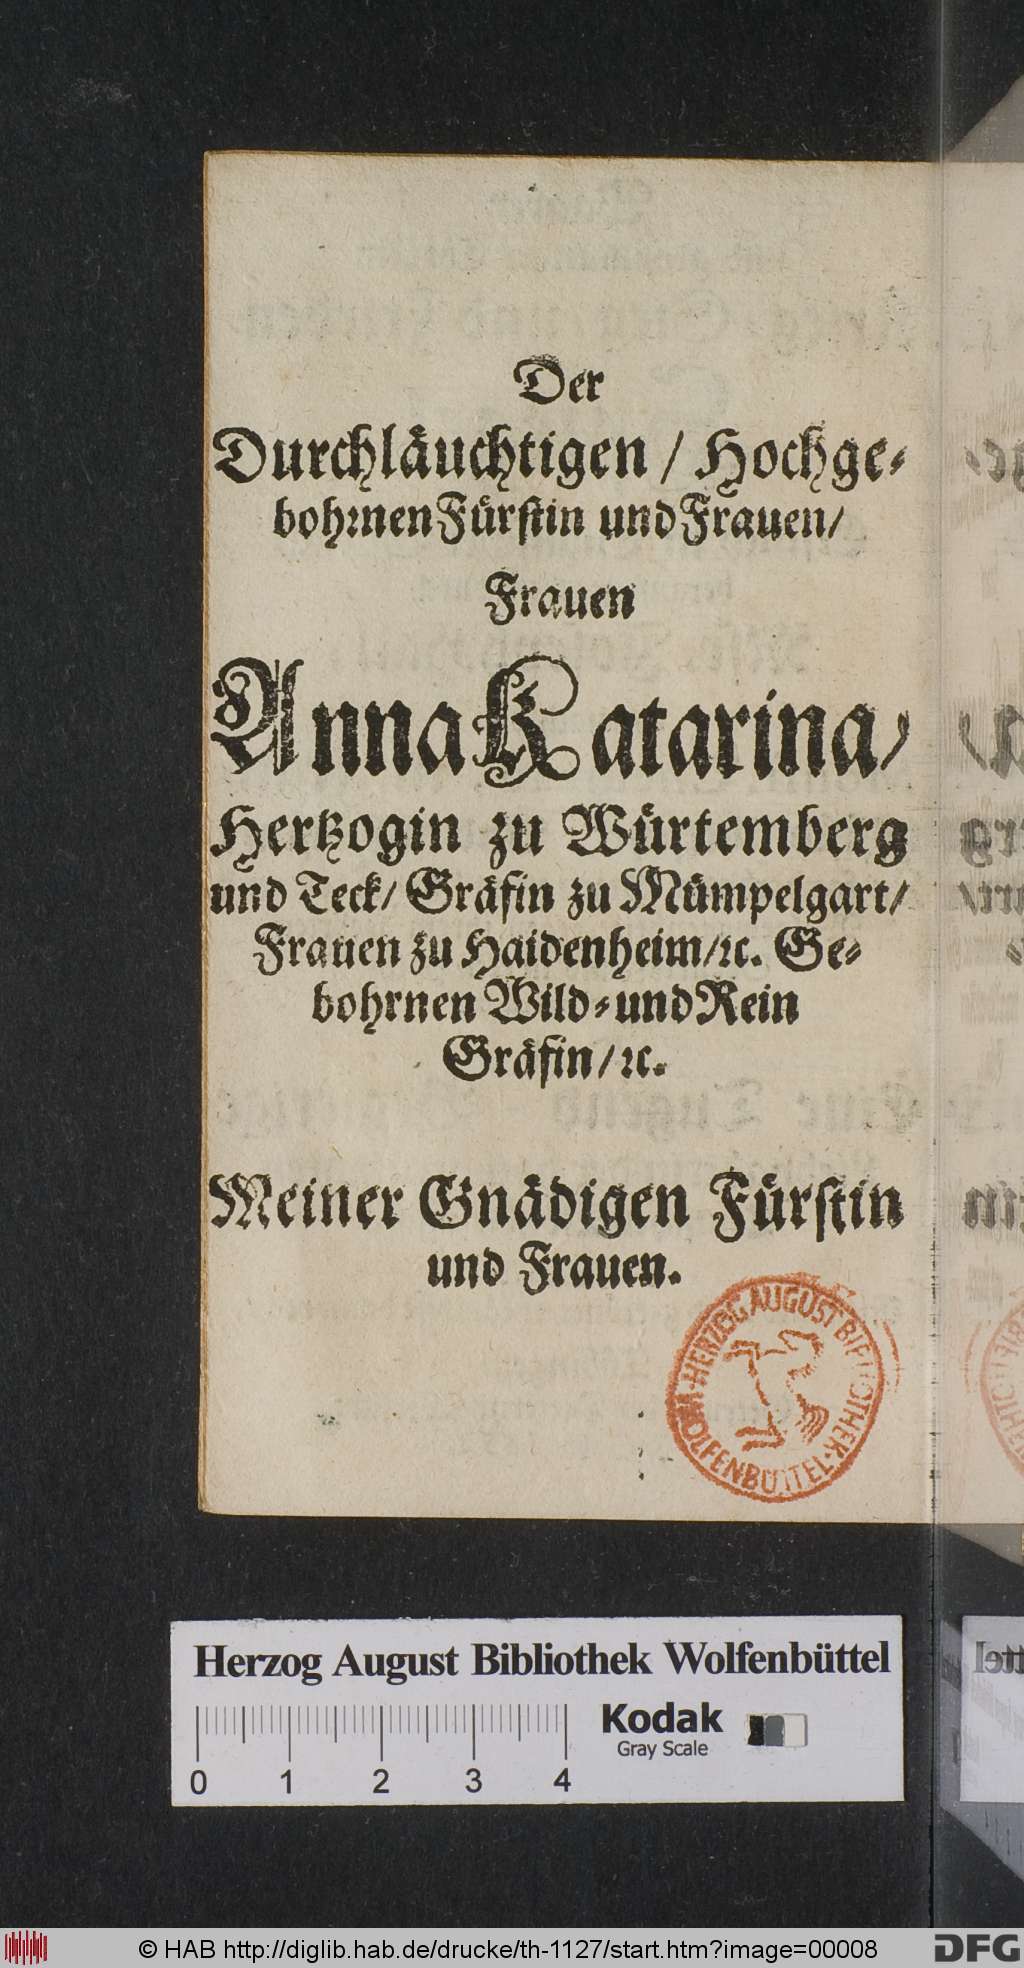 Der
Durchläuchtigen / Hochge-
bohrnen Fürstin und Frauen /
Frauen
Anna Katarina /
Hertzogin zu Würtemberg
und Teck / Gräfin zu Mümpelgart /
Frauen zu Haidenheim / ꝛc. Ge-
bohrnen Wild- und Rein
Gräfin / ꝛc.
Meiner Gnädigen Fürstin
und Frauen.
HERZOG AUGUST BIBLIOTHEK
WOLFENBÜTTEL
Herzog August Bibliothek Wolfenbüttel
Kodak
Gray Scale
0 1 2 3 4
© HAB http://diglib.hab.de/drucke/th-1127/start.htm?image=00008
DFG